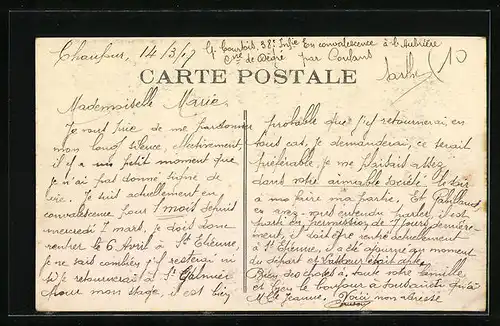 Chaufour, 14/3/17
G. Courtois, 38e Infie En convalescence à l'Aubière
Cne de Degré par Coulans
Sarthe
10
CARTE POSTALE
Mademoiselle Marie,
Je vous prie de me pardonner
mon long silence, Effectivement
il y a un petit moment que
je n'ai pas donné signe de
vie. Je suis actuellement en
convalescence pour 1 mois depuis
mercredi 7 mars, je dois donc
rentrer le 6 Avril à St Etienne,
je ne sais combien j'y resterai ni
si je retournerai à St Galmier
pour mon stage, il est bien
probable que j'y retournerai en
tout cas, je demanderai, ce serait
préférable, je me plaisais assez
dans votre aimable société le soir
à ma faire ma partie. Et
en avez-vous entendu parler, il est
parti en permission de 7 jours dernière-
ment, il doit être rentré actuellement
à St Etienne, il a été ajourné au moment
du départ et
Bien des choses à toute votre famille
et bien le bonjour à
Mlle Jeanne, Voici mon adresse